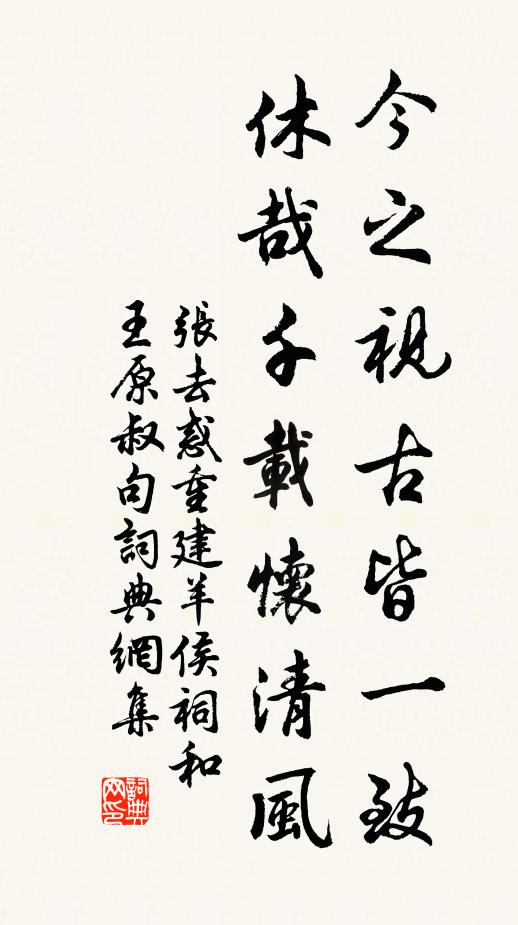 今之視古皆一致
休哉千載懷清風
張去惑重建羊侯祠和
王原叔句詞典網集
詞典網印